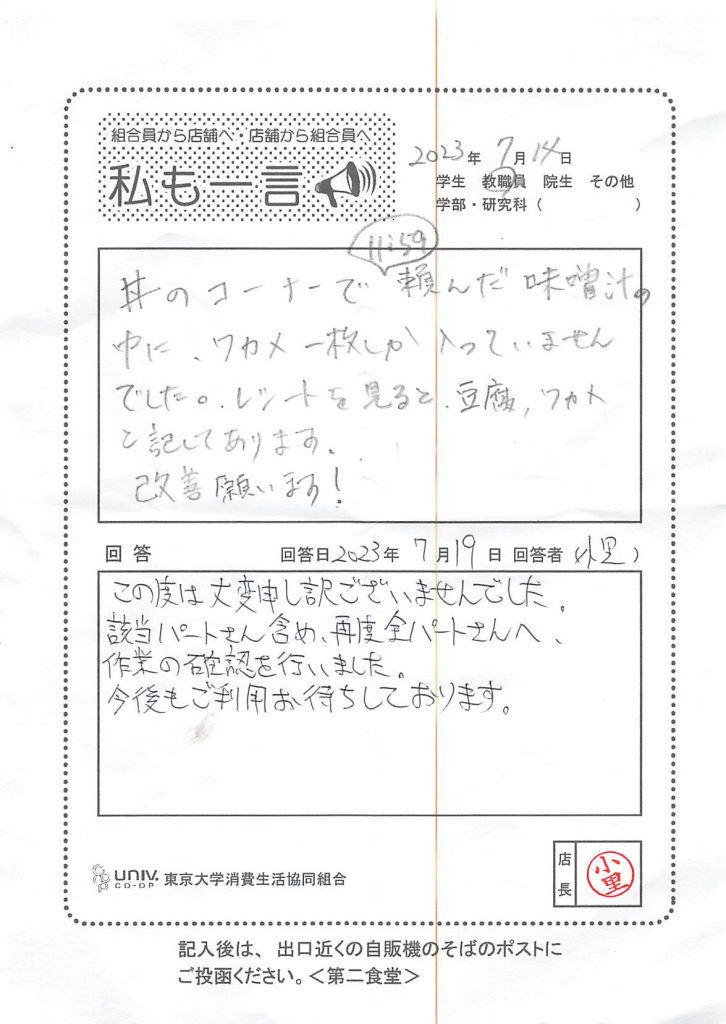 組合員から店舗へ・店舗から組合員へ
私も一言
2023年 7月14日
学生 教職員 院生 その他
学部・研究科（ ）
11:59
丼のコーナーで頼んだ味噌汁の
中に、ワカメ一枚しか入っていません
でした。レシートを見ると、豆腐,ワカメ
と記してあります。
改善願います!
回答 回答日2023年 7月19日 回答者（小里）
この度は大変申し訳ございませんでした。
該当パートさん含め、再度全パートさんへ、
作業の確認を行いました。
今後もご利用お待ちしております。
UNIV. CO-OP 東京大学消費生活協同組合
店長 小里
記入後は、出口近くの自販機のそばのポストに
ご投函ください。＜第二食堂＞